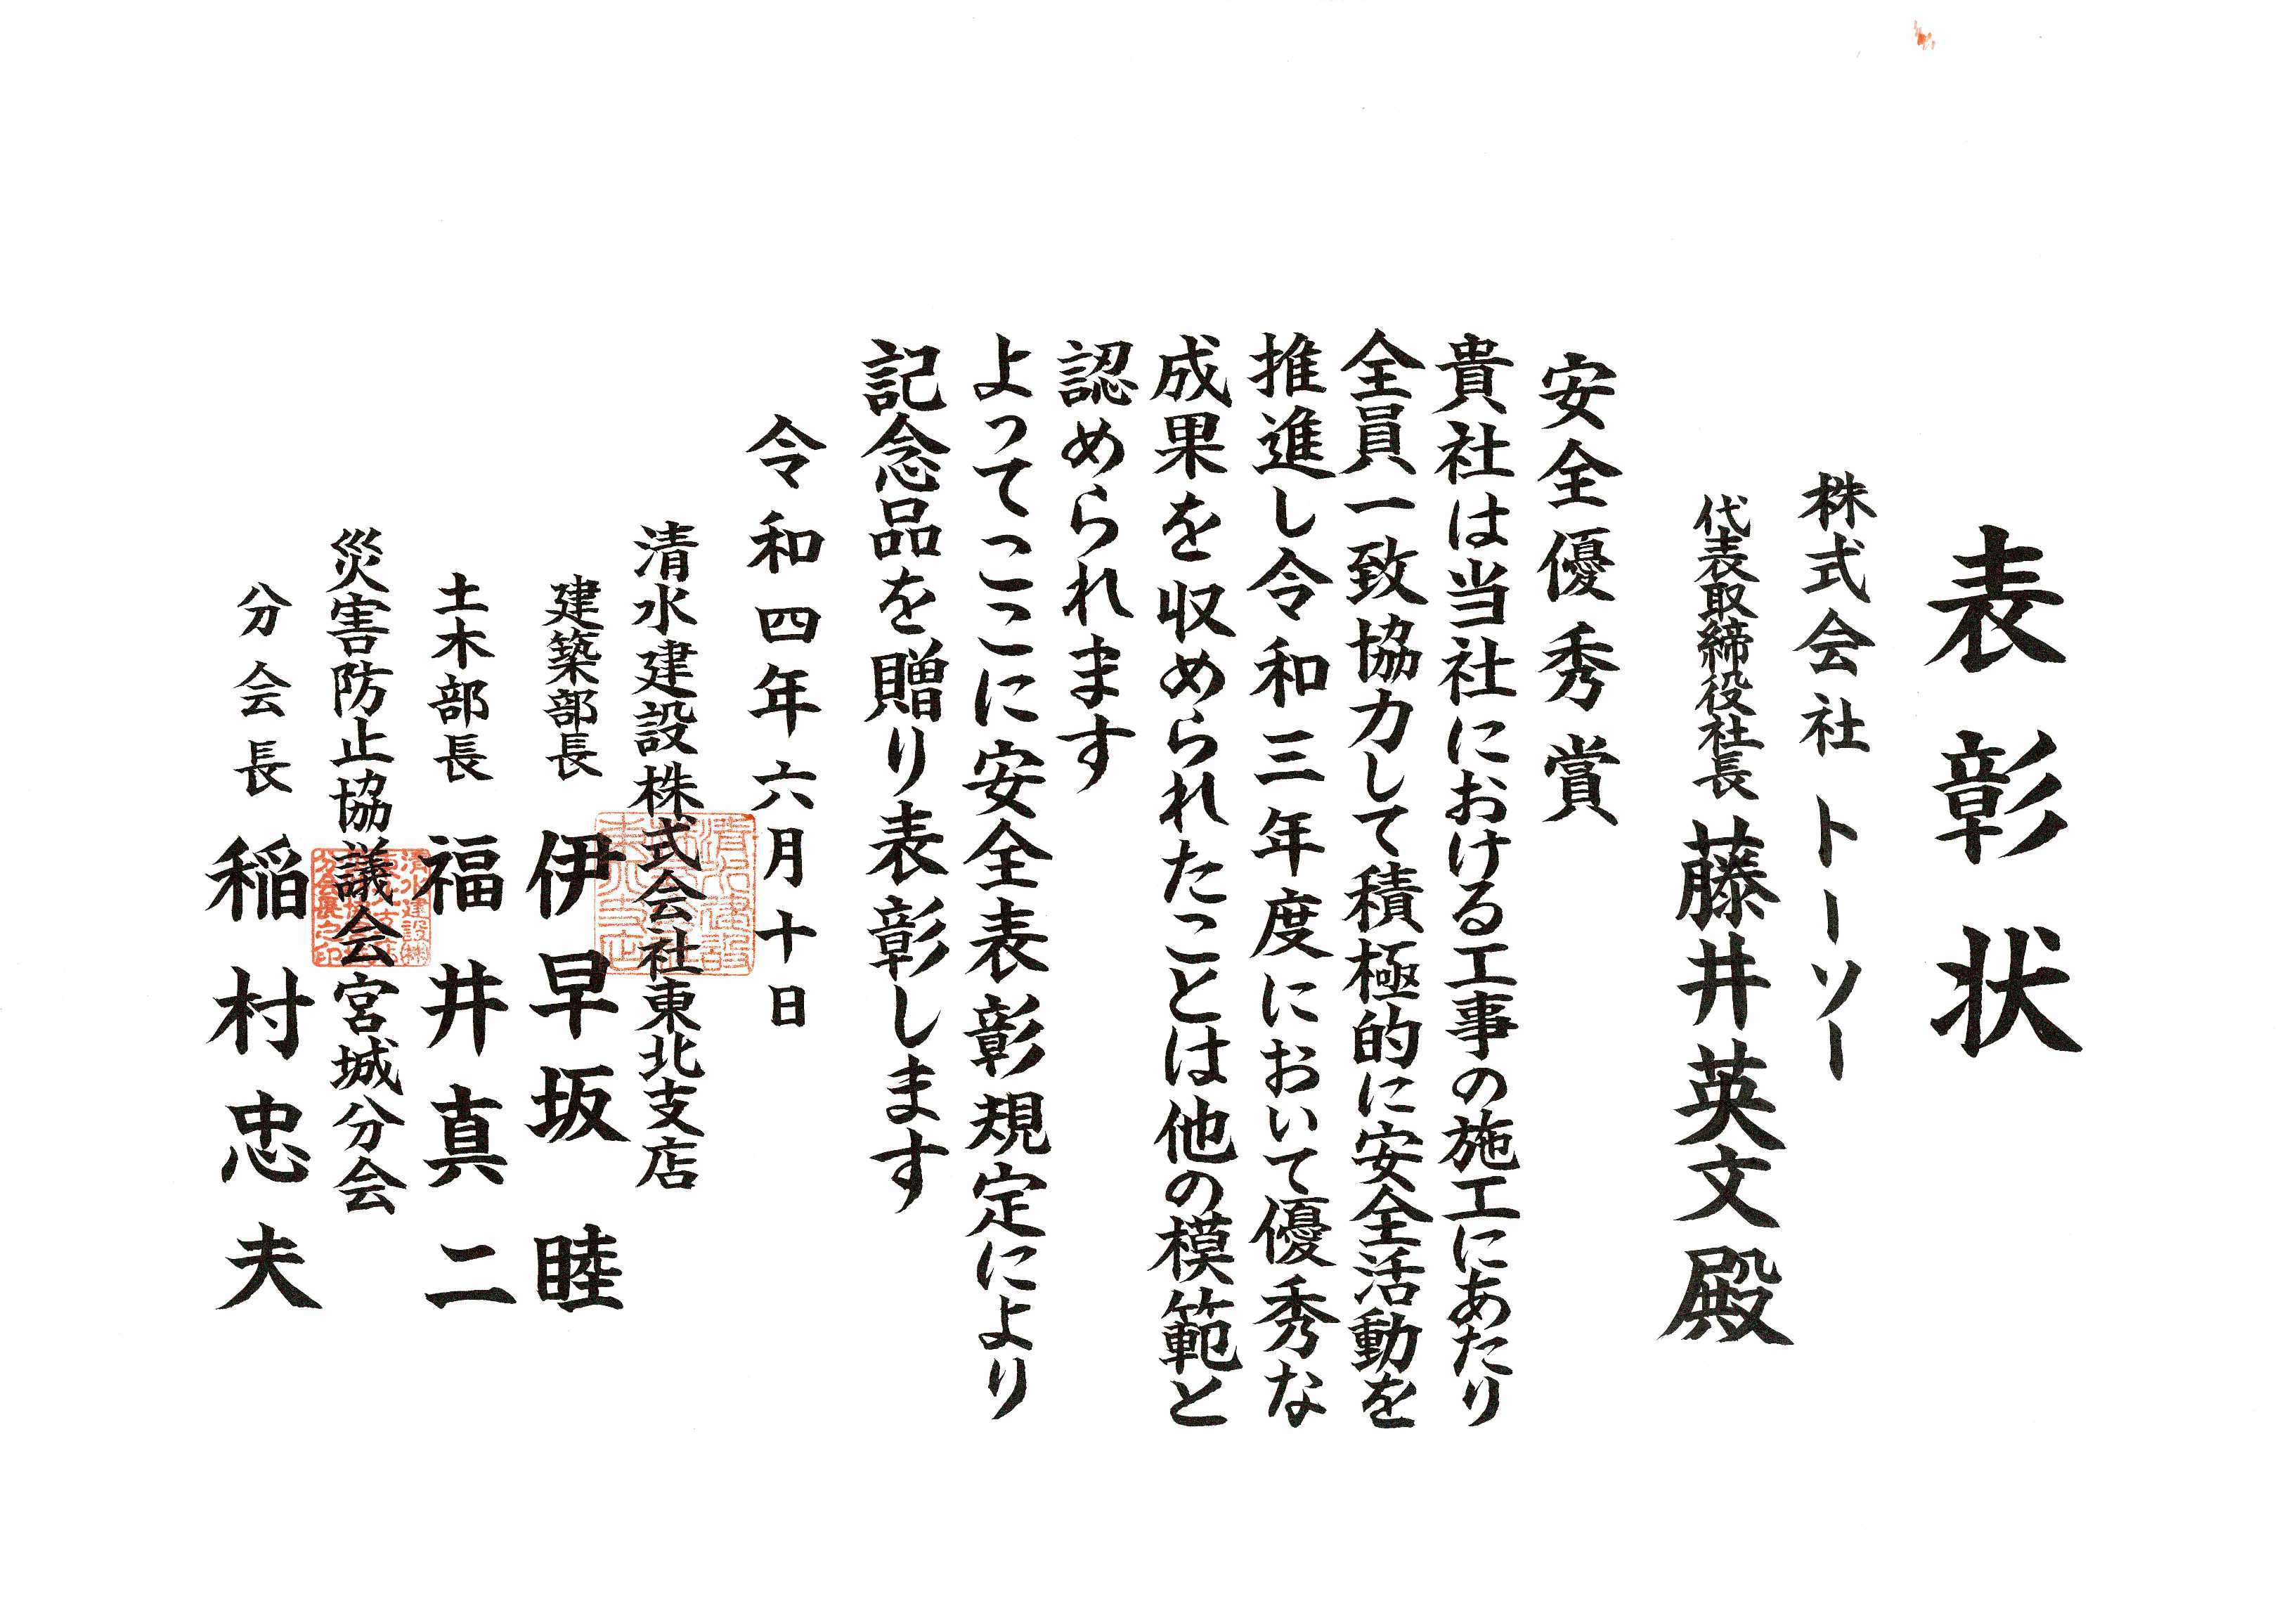 表彰状
株式会社トーソー
代表取締役社長 藤井英文殿
安全優秀賞
貴社は当社における工事の施工にあたり
全員一致協力して積極的に安全活動を
推進し令和三年度において優秀な
成果を収められたことは他の模範と
認められます
よってここに安全表彰規定により
記念品を贈り表彰します
令和四年六月十日
清水建設株式会社東北支店
建築部長 伊早坂睦
土木部長 福井真二
災害防止協議会宮城分会
分会長 稲村忠夫